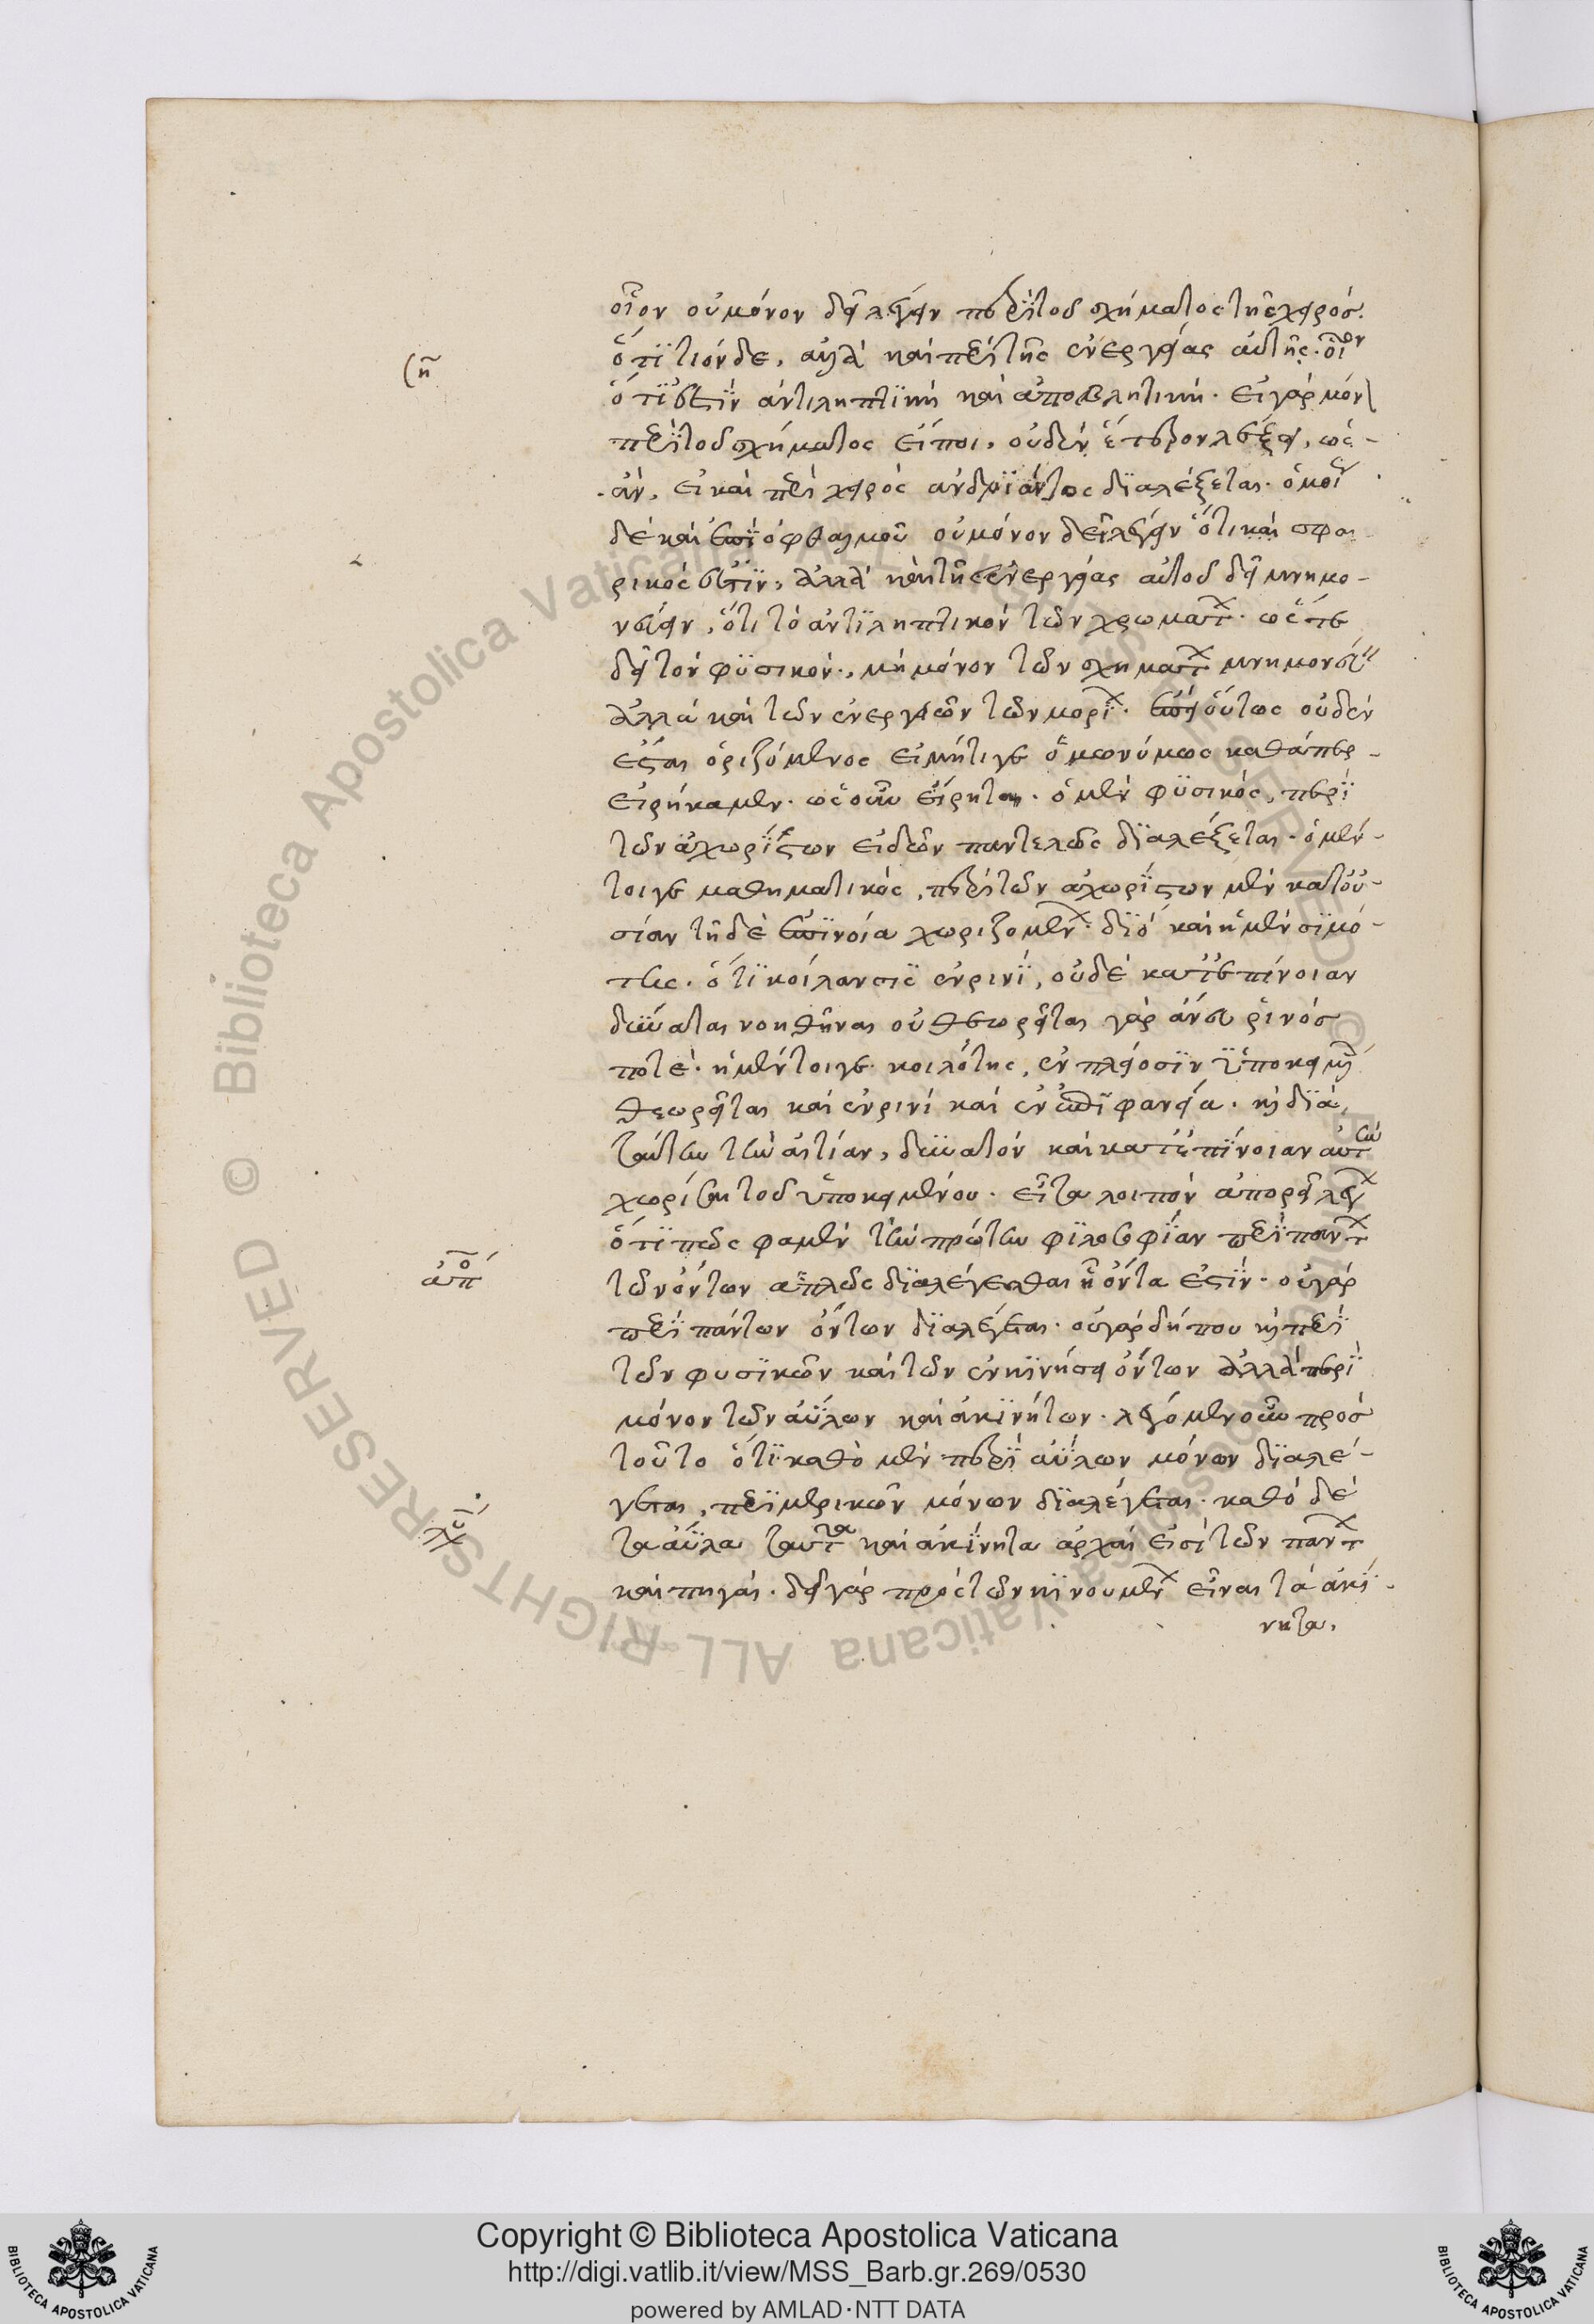 οἷον οὐ μόνον δεῖ λέγειν περὶ τοῦ σχήματος τῆς χειρός.
ὅτι τιόνδε, ἀλλὰ καὶ περὶ τῆς ἐνεργείας αὐτῆς. οἷον
ση
ὅτι ἐστὶν ἀντιληπτικὴ καὶ ἀποβλητικὴ. εἰ γὰρ μόν
περὶ τοῦ σχήματος εἴποι, οὐδὲν ἕτερον λέξει, ὡς
ἂν, εἰ καὶ περὶ χειρὸς ἀνδριάντος διαλέξεται. ὁμοί
δὲ καὶ ἐπὶ ὀφθαλμοῦ οὐ μόνον δεῖ λέγειν ὅτι καὶ σφαι
ρικός ἐστιν, ἀλλὰ καὶ τῆς ἐνεργείας αὐτοῦ δεῖ μνημο-
νεύειν, ὅτι τὸ ἀντιληπτικὸν τῶν χρωμάτ. ὥστε
δεῖ τὸν φυσικὸν, μὴ μόνον τῶν σχημάτ μνημονεύ
ἀλλὰ καὶ τῶν ἐνεργειῶν τῶν μορί. ἐπεὶ οὕτως οὐδὲν
ἔσται ὁριζόμενος εἰ μήτι γε ὁμωνύμως καθάπερ
εἰρήκαμεν. ὡς οὖν εἴρηται. ὁ μὲν φυσικὸς, περὶ
τῶν ἀχωρίστων εἰδῶν παντελῶς διαλέξεται. ὁ μέν-
τοιγε μαθηματικὸς, περὶ τῶν ἀχωρίστων μὲν κατ οὐ-
σίαν τῇ δὲ ἐπινοία χωριζομέν. διὸ καὶ ἡ μὲν σιμό-
της. ὅτι κοίλανσις ἐν ρινὶ, οὐδὲ κατ ἐπίνοιαν
δύναται νοηθῆναι οὐ θεωρεῖται γὰρ ἄνευ ῥινός
ποτέ. ἡ μέντοιγε κοιλότης, ἐν πλείοσιν ὑποκειμ
θεωρεῖται καὶ ἐν ρινὶ καὶ ἐν ἐπιφανεία. κ διὰ
ταύτην τὴν αἰτίαν, δυνατὸν καὶ κατ ἐπίνοιαν αὐτὴν
χωρίσαι τοῦ ὑποκειμένου. εἶτα λοιπὸν ἀπορεῖ λέγ
ὅτι πῶς φαμὲν τὴν πρώτην φιλοσοφίαν περὶ πάντ
ἀπο
τῶν ὄντων ἁπλῶς διαλέγεσθαι ᾗ ὄντα ἐστίν. οὐ γὰρ
περὶ πάντων ὄντων διαλέγεται. οὐ γὰρ δήπου κ περὶ
τῶν φυσικῶν καὶ τῶν ἐν κινήσει ὄντων ἀλλὰ περὶ
μόνον τῶν ἀΰλων καὶ ἀκινήτων. λέγομεν οὖν πρός
τοῦτο ὅτι καθὸ μὲν περὶ ἀΰλων μόνων διαλέ-
γεται, περὶ μερικῶν μόνων διαλέγεται. καθὸ δὲ
τὰ ἄϋλα ταῦτα καὶ ἀκίνητα ἀρχαὶ εἰσὶ τῶν πάντ
καὶ πηγαὶ. δεῖ γὰρ πρὸς τῶν κινουμέν εἶναι τὰ ἀκί-
νητα.
Copyright © Biblioteca Apostolica Vaticana
http://digi.vatlib.it/view/MSS_Barb.gr.269/0530
powered by AMLAD·NTT DATA
BIBLIOTECA APOSTOLICA VATICANA
BIBLIOTECA APOSTOLICA VATICANA
© Biblioteca Apostolica Vaticana ALL RIGHTS RESERVED